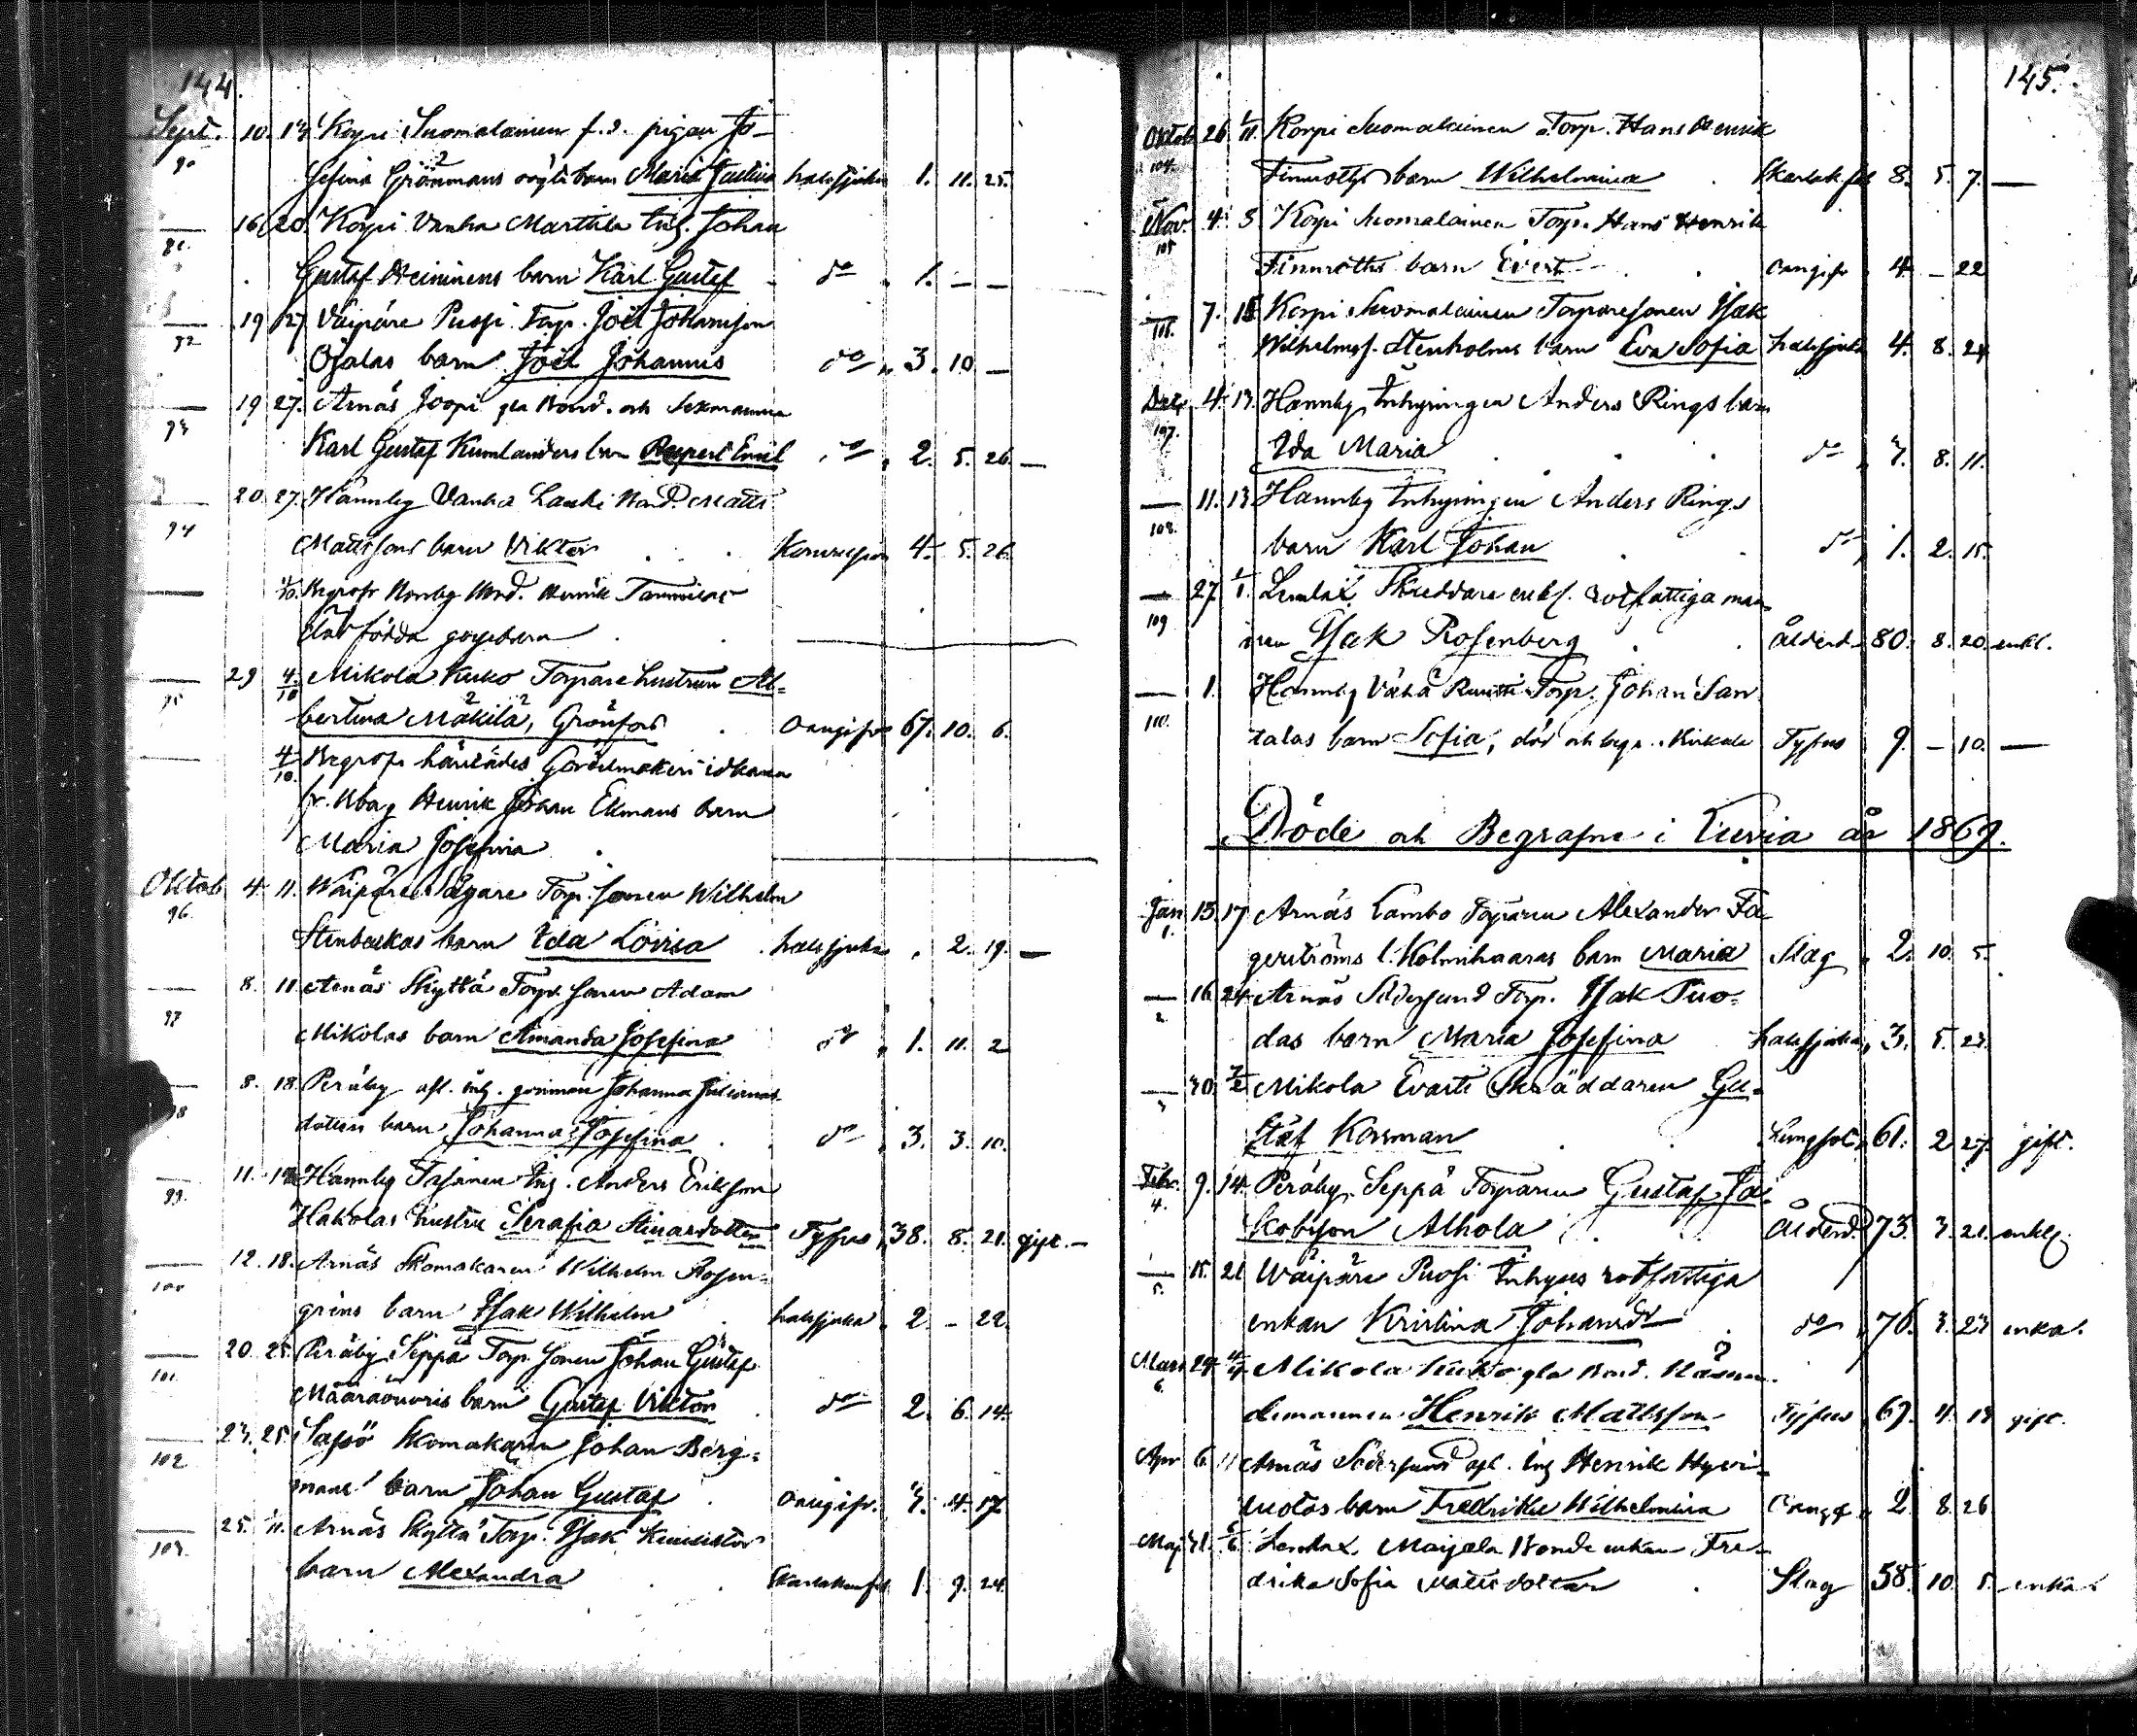 144.
Sept. 10. 13. Korpi Suomalainen f. d. pigan Jo-
90 sefina Grönmans oägta barn Maria Justina halssjuka 1. 11. 25.
— 16 20. Korpi Vanha Marttila Inh. Johan
91. Gustaf Heininens barn Karl Gustaf do „ 1. — —
— 19 27 Väipäre Pussi Torp. Joël Johansson
92 Ojalas barn Joël Johannes do „ 3. 10. —
— 19 27. Arnäs Joopi gla Bond. och Sexmannen
93 Karl Gustaf Kumlanders barn Rupert Emil do „ 2. 5. 26. —
— 20. 27. Hannby Vanha Lauki Bond. Matts
94 Mattssons barn Viktor Konvulsion 4. 5. 26.
— 4/10. Begrofs Norrby Bond. Henrik Tammines
dödfödda gossebarn
— 29 4/10 Mikola Kuko Torpare hustrun Al-
95 bertina Mäkilä, Grönfors Ospecifi 67. 10. 6.
— 4/10. Begrofs härstädes Gördelmakeri idkaren
fr. Ulvsby Henrik Johan Ekmans barn
Maria Josefina
Oktob 4. 11. Väipäre Sägare Torp. sonen Wilhelm
96. Stenbackas barn Ida Lovisa halssjuka „ 2. 19. —
— 8. 11. Arnäs Skyttä Torp. sonen Adam
97 Mikolas barn Amanda Josefina do „ 1. 11. 2
— 8. 18. Peräby afl. inh. qvinnan Johanna Julianas
98 dotters barn Johanna Josefina do „ 3. 3. 10.
— 11. 18 Hannby Tasanen Inh. Anders Eriksson
99. Hakolas hustru Serafia Stinasdotter Tyfus 38. 8. 21. gift. —
12. 18. Arnäs Skomakaren Wilhelm Rosen-
100 grens barn Isak Wilhelm halssjuka „ 2. — 22.
— 20 25. Peräby Seppä Torp. sonen Johan Gustaf
101 Määräönvoris barn Gustaf Viktor do 2. 6. 14.
— 23. 25. Sassö Skomakaren Johan Berg-
102 mans barn Johan Gustaf 3. 4. 17.
— 25. 1/11. Arnäs Skyttä Torp. Isak Kunistos
103. barn Alexandra Skarlakansf. 1. 9. 24.
145.
Oktob. 26 1/11. Korpi Suomalainen Torp. Hans Henrik
104. Finnroths barn Wilhelmina Skarlak.feb 8. 5. 7. —
Nov. 4. 8 Korpi Suomalainen Torp. Hans Henrik
105 Finnroths barn Evert 4 — 22
— 7. 15 Korpi Suomalainen Torparesonen Isak
106. Wilhelmss. Stenholms barn Eva Sofia halssjuka 4. 8. 24
Dec. 4. 13. Hannby Inhysingen Anders Rings barn
107. Ida Maria do „ 3. 8. 11.
— 11. 13 Hannby Inhysingen Anders Rings
108. barn Karl Johan do „ 1. 2. 15.
— 27 1/1. Lemlax Skreddare enkl. rotfattiga man
109 nen Isak Rosenberg Ålderd. 80. 8. 20. enkl.
— 1. Hannby Vähä Ruutti Torp. Johan San
110. talas barn Sofia, död och begr. i Kiukais Tyfus 9. — 10. —
Döde och Begrafne i Luvia år 1869.
Jan 13 17 Arnäs Lambo Torparen Alexander Fa-
1. gerströms l. Holmihaaras barn Maria Slag „ 2. 10. 5.
— 16 24 Arnäs Södersund Torp. Isak Tuo-
2 das barn Maria Josefina halssjuka „ 3. 5. 23.
— 30. 7/2 Mikola Evarti Skräddaren Gu-
3 staf Korsman Lungsot 61. 2 27. gift.
Febr. 9. 14. Peräby Seppä Torparen Gustaf Ja-
4. kobsson Alhola Ålderd. 73. 3. 21. enkl.
— 15. 21 Väipäre Pussi Inhyses rotfattiga
5. enkan Kristina Johansdr do „ 76. 3. 23 enka.
Mars 24 4/4 Mikola Kuko gla Bond. Nämn-
6. demannen Henrik Mattsson Tyfus 67. 11. 19 gift.
Apr. 6 11 Arnäs Södersund afl. Inh Henrik Hyvi-
luotos barn Fredrika Wilhelmina „ 2. 8. 26.
Maj 31. 6/6 Lemlax Maijala Bonde enkan Fre-
drika Sofia Mattsdotter Slag 58. 10. 5. enka